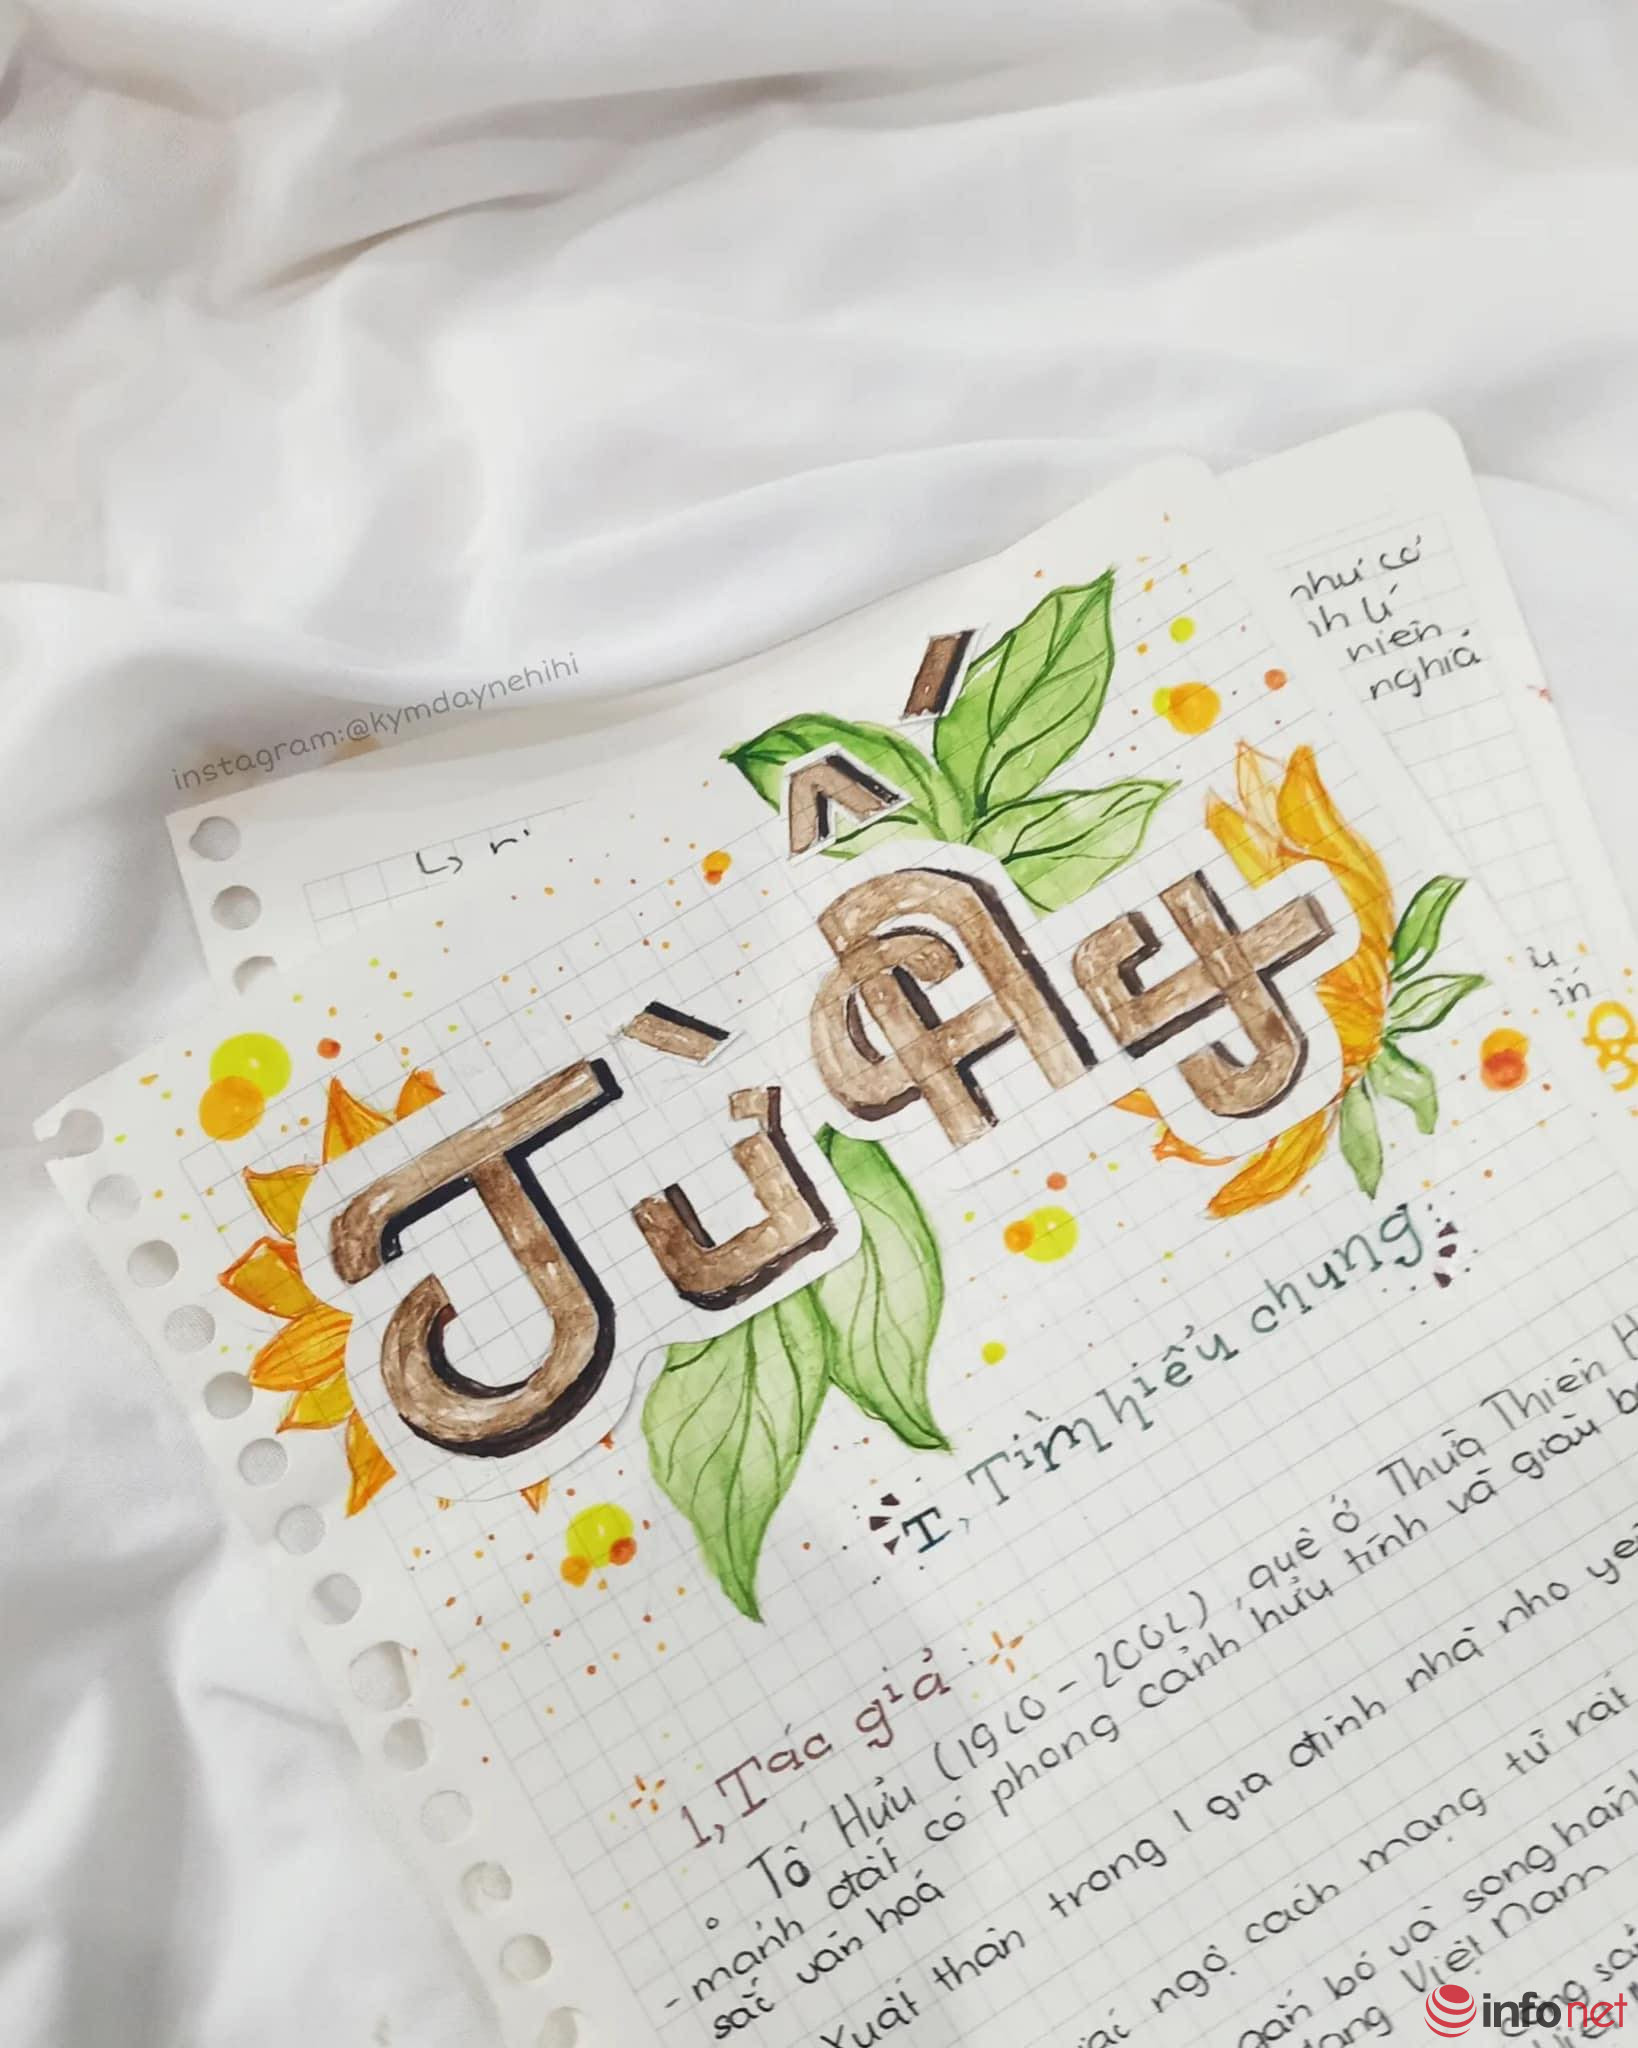 instagram:@kymdaynehihi
như cơ
lí
nghĩa
Từ Ấy
I, Tìm hiểu chung
1, Tác giả:
Tố Hữu (1920 - 2002), quê ở Thừa Thiên
- mảnh đất có phong cảnh hữu tình và giàu
sắc văn hoá
Xuất thân trong 1 gia đình nhà nho
ngộ cách mạng từ rất
gắn bó và song hành
Việt Nam
infonet